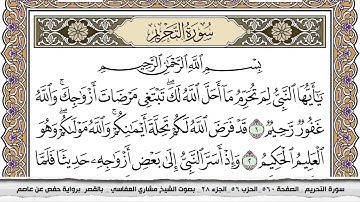 سُورَةُ التَّحْرِيمِ
بِسْمِ اللَّهِ الرَّحْمَٰنِ الرَّحِيمِ
يَا أَيُّهَا النَّبِيُّ لِمَ تُحَرِّمُ مَا أَحَلَّ اللَّهُ لَكَ تَبْتَغِي مَرْضَاتَ أَزْوَاجِكَ وَاللَّهُ
غَفُورٌ رَّحِيمٌ ١ قَدْ فَرَضَ اللَّهُ لَكُمْ تَحِلَّةَ أَيْمَانِكُمْ وَاللَّهُ مَوْلَاكُمْ وَهُوَ
الْعَلِيمُ الْحَكِيمُ ٢ وَإِذْ أَسَرَّ النَّبِيُّ إِلَىٰ بَعْضِ أَزْوَاجِهِ حَدِيثًا فَلَمَّا
سورة التحريم الصفحة - ٥٦٠ الحزب ٥٦ الجزء ٢٨ بصوت الشيخ مشاري العفاسي بالقصر برواية حفص عن عاصم